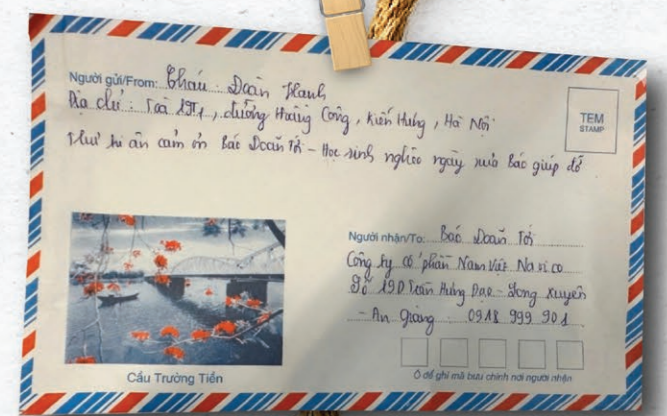 Người gửi/From: Cháu : Doãn Hanh
Địa chỉ : Toà 19T1, đường Hoàng Công, Kiến Hưng, Hà Nội
Thư tri ân cảm ơn Bác Doãn Tới - Học sinh nghèo ngày xưa Bác giúp đỡ
TEM
STAMP
Người nhận/To: Bác Doãn Tới
Công ty cổ phần Nam Việt Navico
Số 19D Trần Hưng Đạo - Long Xuyên
- An Giang 0918 999 901
Cầu Trường Tiền
Ô để ghi mã bưu chính nơi người nhận